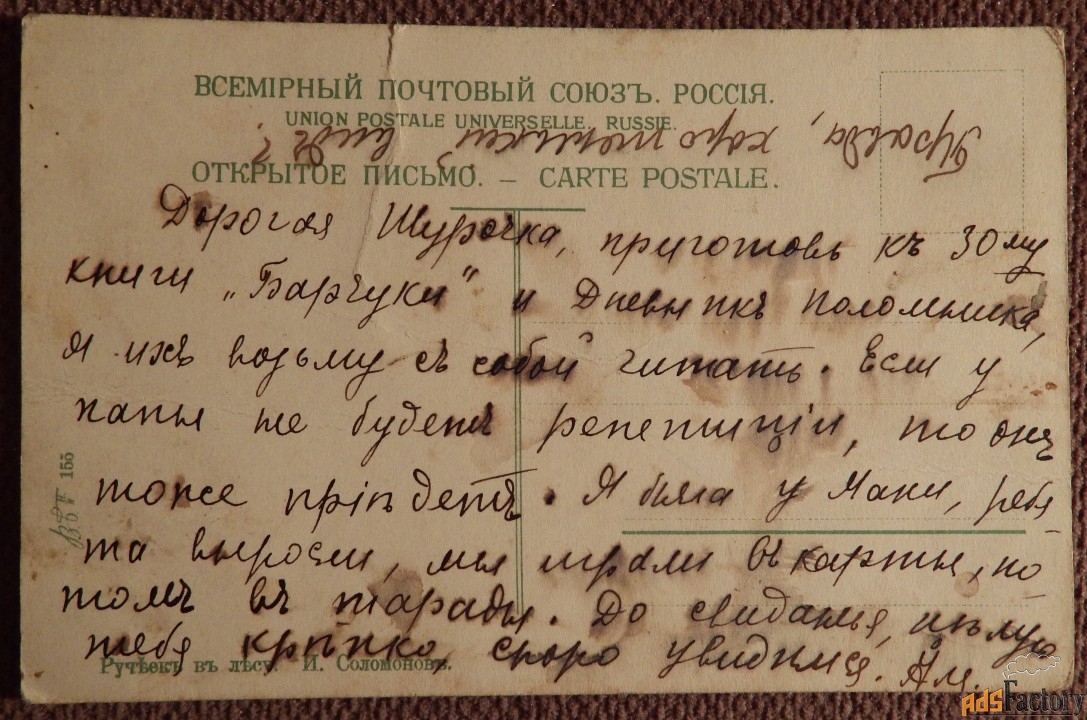 ВСЕМІРНЫЙ ПОЧТОВЫЙ СОЮЗЪ. РОССІЯ.
UNION POSTALE UNIVERSELLE. RUSSIE.
Правда, хорошенький видъ?
ОТКРЫТОЕ ПИСЬМО. – CARTE POSTALE.
Дорогая Шурочка, приготовь къ 30му
книги „Барчуки" и Дневникъ поломника,
я ихъ возьму съ собой читать. Если у
папы не будетъ репетиціи, то онъ
тоже пріѣдетъ. Я была у Маки, ребя
та выросли, мы играли въ карты, по
томъ въ шарады. До свиданья, цѣлую
тебя крѣпко, скоро увидимся. Ам.
155
Ручеекъ въ лѣсу. И. Соломоновъ.
AdsFactory